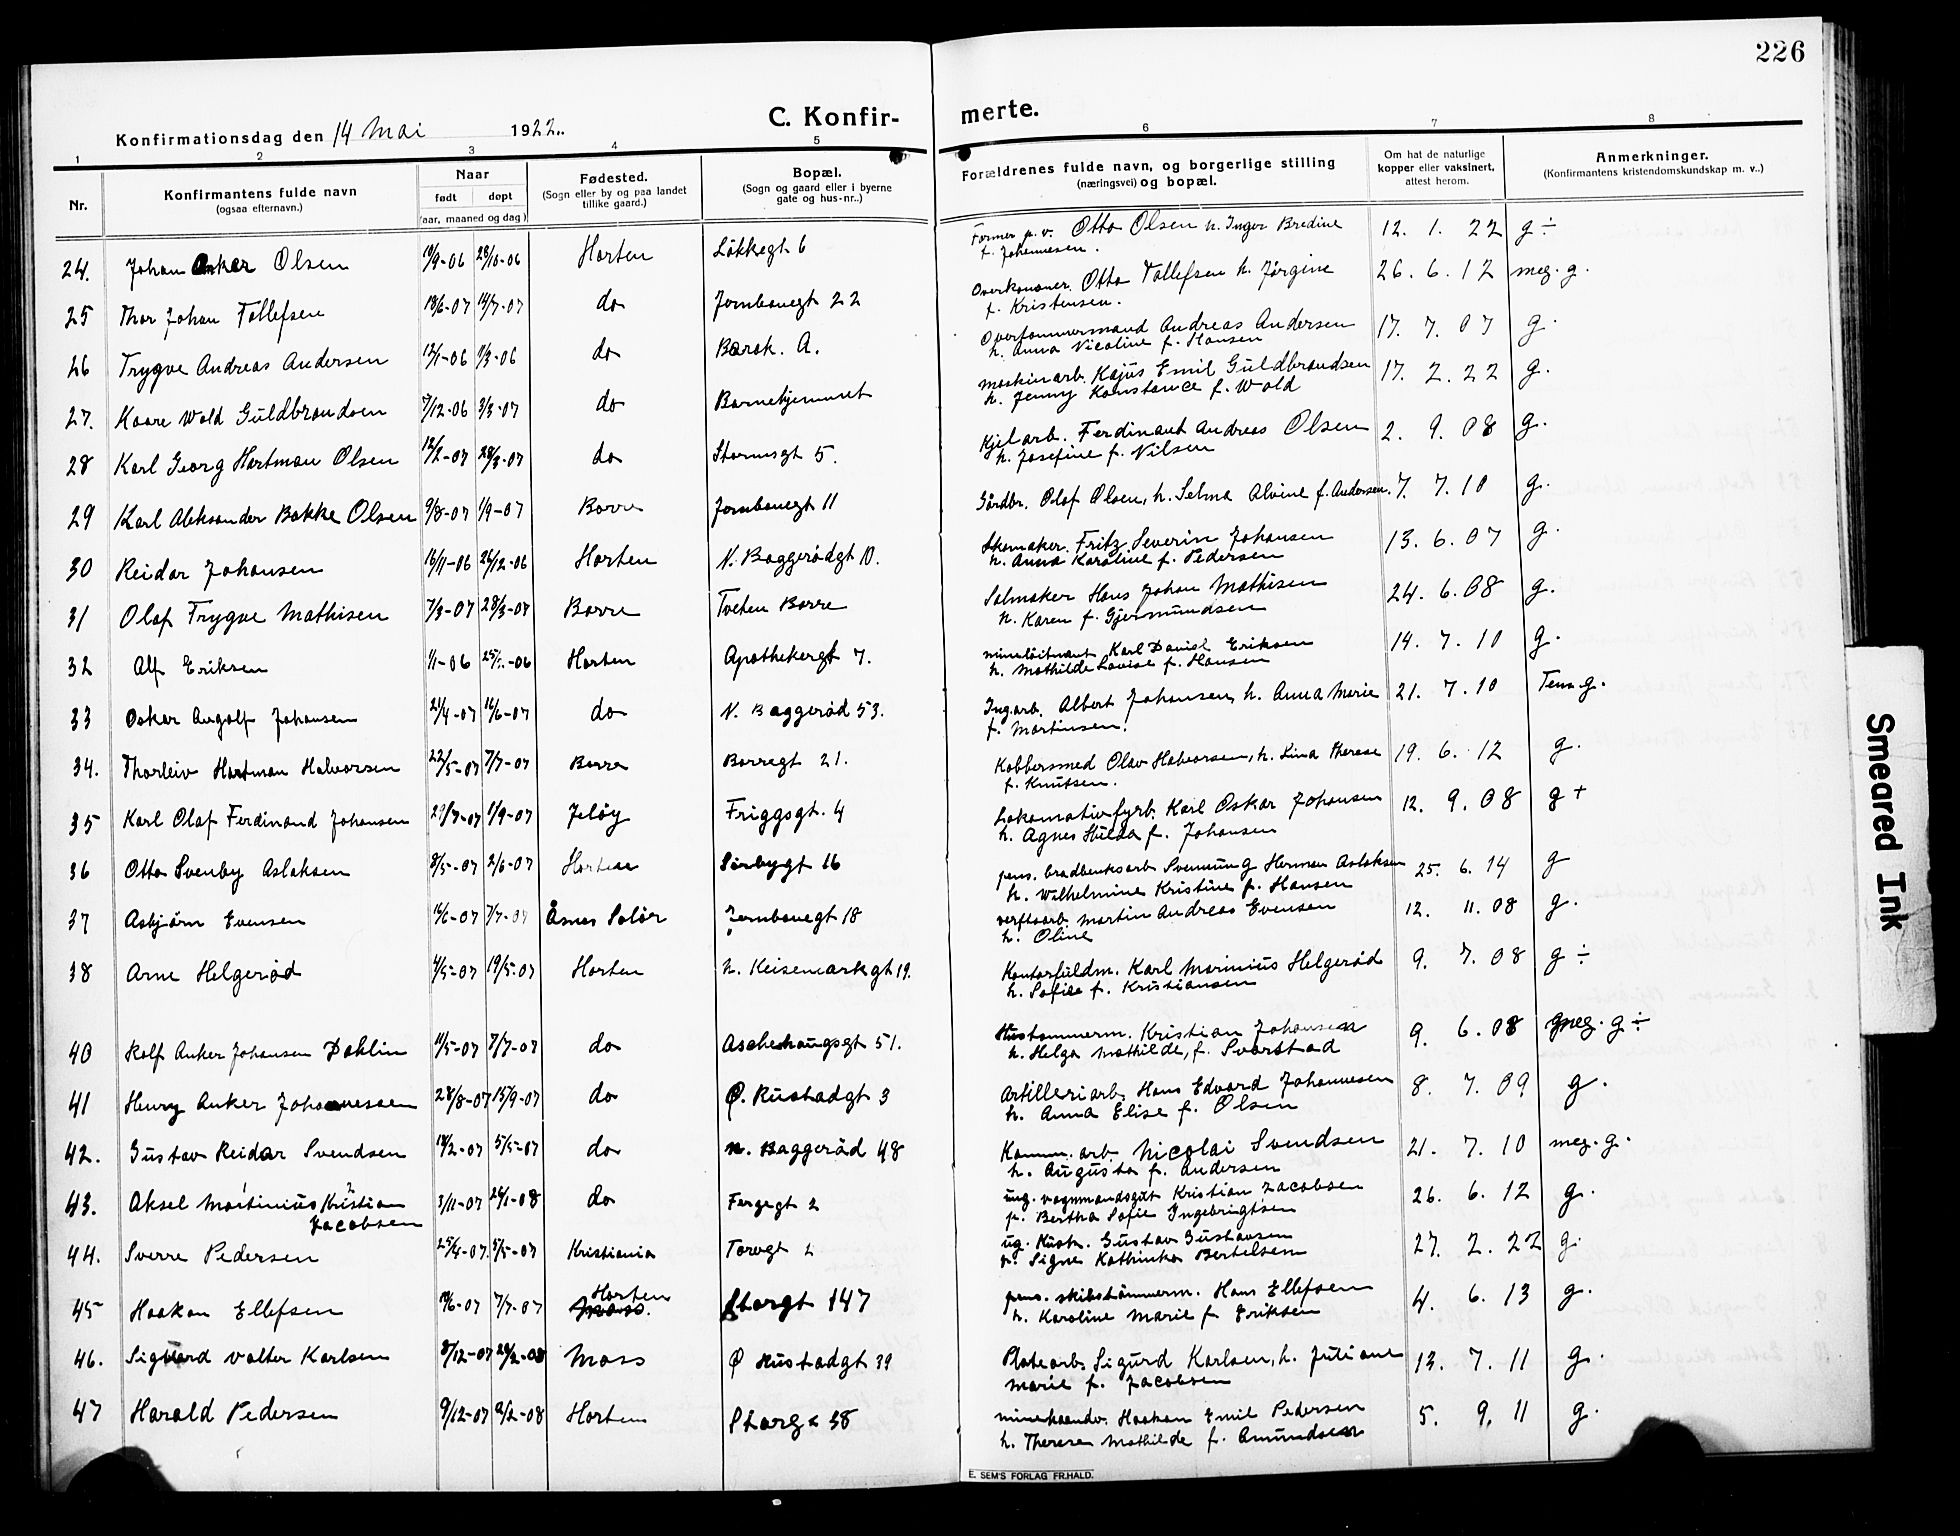 226
Konfirmationsdag den 14 Mai 1922..
C. Konfir-
merte.
1 2 3 4 5 6 7 8
Nr. Konfirmantens fulde navn (ogsaa efternavn.) Naar født døpt (aar, maaned og dag) Fødested. (Sogn eller by og paa landet tillike gaard.) Bopæl. (Sogn og gaard eller i byerne gate og hus-nr..) Forældrenes fulde navn, og borgerlige stilling (næringsvei) og bopæl. Om hat de naturlige kopper eller vaksinert, attest herom. Anmerkninger. (Konfirmantens kristendomskundskap m. v..)
24. Johan Anker Olsen 19/9-06 28/10-06 Horten Løkkegt 6 Former p. v. Otto Olsen h. Inger Bredine 12. 1. 22 g ÷
f. Johannesen.
25 Thor Johan Tollefsen 18/6-07 14/7-07 do Jernbanegt 22 Overkanoner. Otto Tollefsen h. Jørgine 26. 6. 12 meg. g.
f. Kristensen.
26 Trygve Andreas Andersen 12/1-06 1/3-06 do Barak. A. Overtømmermand Andreas Andersen 17. 7. 07 g.
h. Anna Nicoline f. Hansen
27. Kaare Wold Guldbrandsen 7/12-06 3/3-07 do Barnehjemmet Maskinarb. Kajus Emil Guldbrandsen 17. 2. 22 g.
h. Jenny Konstance f. Wold
28 Karl Georg Hartman Olsen 12/2-07 28/3-07 do Stormsgt 5. Kjelarb. Ferdinant Andreas Olsen 2. 9. 08 g.
h. Josefine f. Nilsen
29 Karl Aleksander Bakke Olsen 9/8-07 1/9-07 Borre Jernbanegt 11 Gårdbr. Olaf Olsen, h. Selma Alvine f. Andersen. 7. 7. 10 g.
30 Reidar Johansen 16/11-06 26/12-06 Horten N. Baggerødgt 10. Skomaker. Fritz Severin Johansen 13. 6. 07 g.
h. Anna Karoline f. Pedersen
31 Olaf Trygve Mathisen 7/3-07 28/3-07 Borre Tveten Borre Salmaker Hans Johan Mathisen 24. 6. 08 g.
h. Karen f. Gjermundsen
32 Alf Eriksen 1/1-06 Horten Apothekergt 7. Mineløitnant Karl David Eriksen 14. 7. 10 g.
h. Mathilde Lovise f. Hansen
33 Oskar Angolf Johansen 21/4-07 16/6-07 do N. Baggerød 53. Ing.arb. Albert Johansen, h. Anna Marie 21. 7. 10 Tem. g.
f. Martinsen.
34. Thorleiv Hartman Halvorsen 22/5-07 7/7-07 Borre Borregt 21. Kobbersmed Olav Halvorsen, h. Lina Therese 19. 6. 12 g.
f. Knutsen.
35 Karl Olaf Ferdinand Johansen 27/7-07 1/9-07 Jeløy Friggsgt. 4 Lokomotivfyrb. Karl Oskar Johansen 12. 9. 08 g +
h. Agnes Hulda f. Johansen
36 Otto Svenby Aslaksen 8/5-07 2/6-07 Horten Sørbygt 16 pens. bradbenksarb Svennung Herman Aslaksen 25. 6. 14 g
h. Wilhelmine Kristine f. Hansen
37 Asbjørn Evensen 16/6-07 7/7-07 Åsnes Solør Jernbanegt 18 Verftsarb. Martin Andreas Evensen 12. 11. 08 g.
h. Oline
38 Arne Helgerød 4/5-07 19/5-07 Horten N. Keisemarkgt 19. Kontorfuldm. Karl Marinius Helgerød 9. 7. 08 g ÷
h. Sofie f. Kristiansen
40 Rolf Anker Johansen Dahlin 11/5-07 7/7-07 do Aschehaugsgt 51. Hustømmerm. Kristian Johansen 9. 6. 08 meg. g ÷
h. Helga Mathilde, f. Svarstad
41 Henry Anker Johannessen 28/8-07 15/9-07 do Ø. Rustadgt 3 Artilleriarb. Hans Edvard Johannesen 8. 7. 09 g.
h. Anna Elise f. Olsen
42. Gustav Reidar Svendsen 18/2-07 5/5-07 do N. Baggerød 48 Komm. arb. Nicolai Svendsen 21. 7. 10 meg. g.
h. Augusta f. Andersen
43. Aksel Martinius Kristian 3/11-07 26/1-08 do Fergegt 2 ung. vognmandsgut Kristian Jacobsen 26. 6. 12 g.
Jacobsen p. Bertha Sofie Ingebrigtsen
44. Sverre Pedersen 25/4-07. 5/5-07 Kristiania Torvgt 2 ug. Kusk. Gustav Gustavsen 27. 2. 22 g.
p. Signe Kathinka Bertelsen
45 Haakon Ellefsen 19/6-07 7/7-07 Horten Storgt 147 pens. skibstømmerm. Hans Ellefsen 4. 6. 13 g.
h. Karoline Marie f. Eriksen
46. Sigvard Valter Karlsen 8/12-07 29/2-08 Moss Ø Rustadgt 39 Platearb. Sigurd Karlsen, h. Juliane 13. 7. 11 g.
Marie f. Jacobsen
47 Harald Pedersen 9/12-07 9/2-08 Horten Storgt 38 Minehaandv. Haakon Emil Pedersen 5. 9. 11 g.
h. Therese Mathilde f. Amundsen
E. SEM'S FORLAG FR.HALD.
Smeared Ink